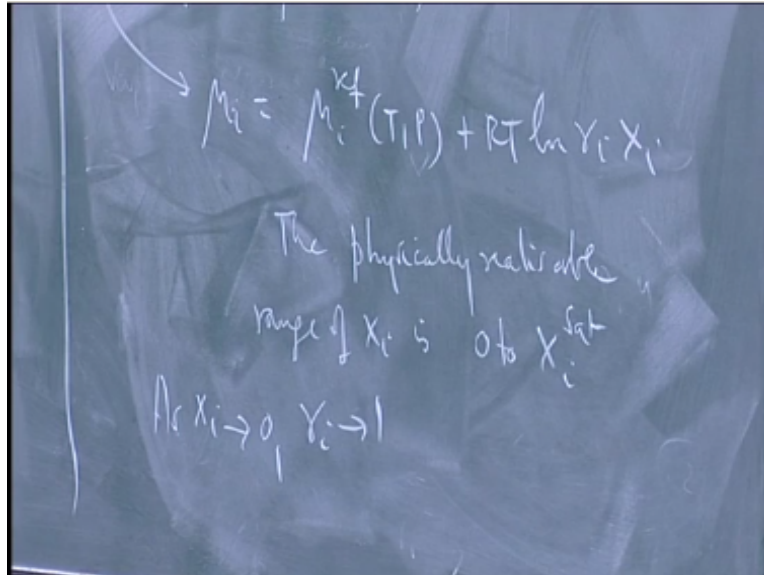 μi = μi^ref (T,P) + RT ln γi Xi
The physically realisable
range of Xi is 0 to Xi^sat
As Xi → 0, γi → 1